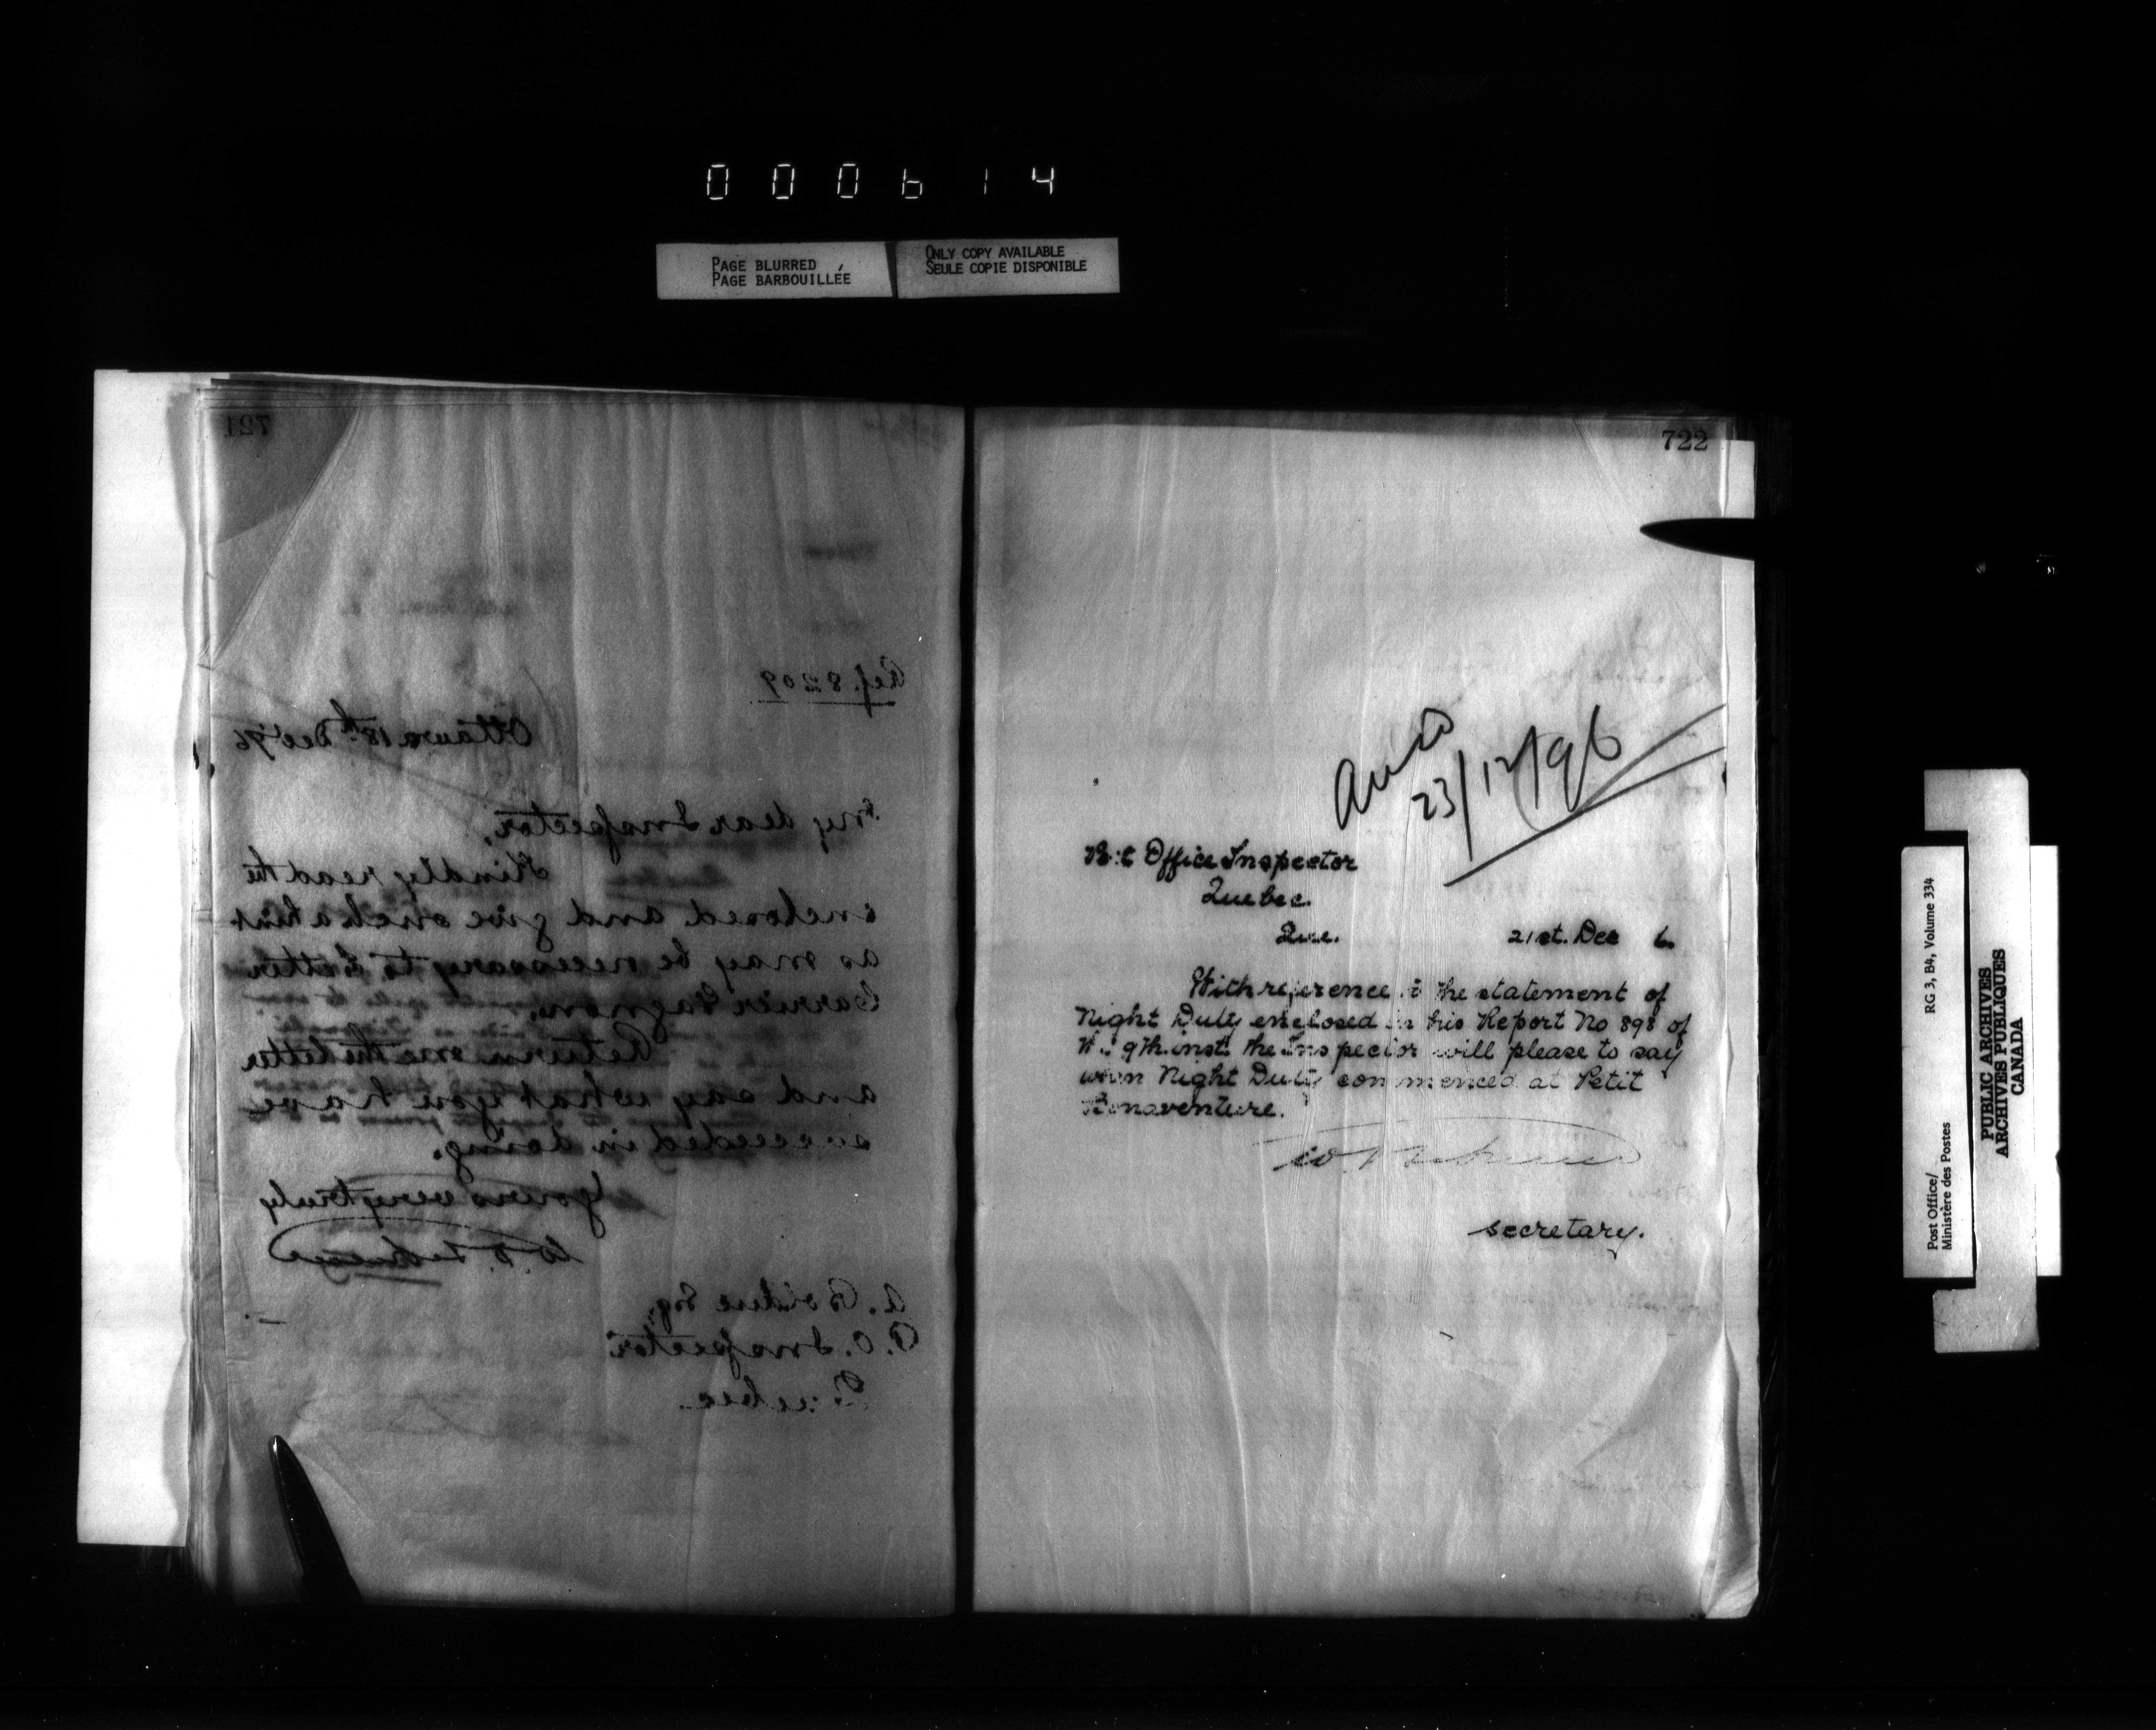 000614
PAGE BLURRED
PAGE BARBOUILLÉE
ONLY COPY AVAILABLE
SEULE COPIE DISPONIBLE
721
Ref. 8209
Ottawa 18th Dec '96
My dear Inspector,
Kindly read the
enclosed and give such a hint
as may be necessary to Letter
Carrier Gagnon.
Return me the letter
and say what you have
succeeded in doing.
Yours very truly
A. Bolduc Esq.
P.O. Inspector
Quebec.
722
23/12/96
Office Inspector
Quebec.
Que. 21st. Dec 6.
With reference to the statement of
Night Duty enclosed in his Report No 898 of
9th. inst. the Inspector will please to say
when Night Duty commenced at Petit
Bonaventure.
secretary.
Post Office/
Ministère des Postes
RG 3, B4, Volume 334
PUBLIC ARCHIVES
ARCHIVES PUBLIQUES
CANADA